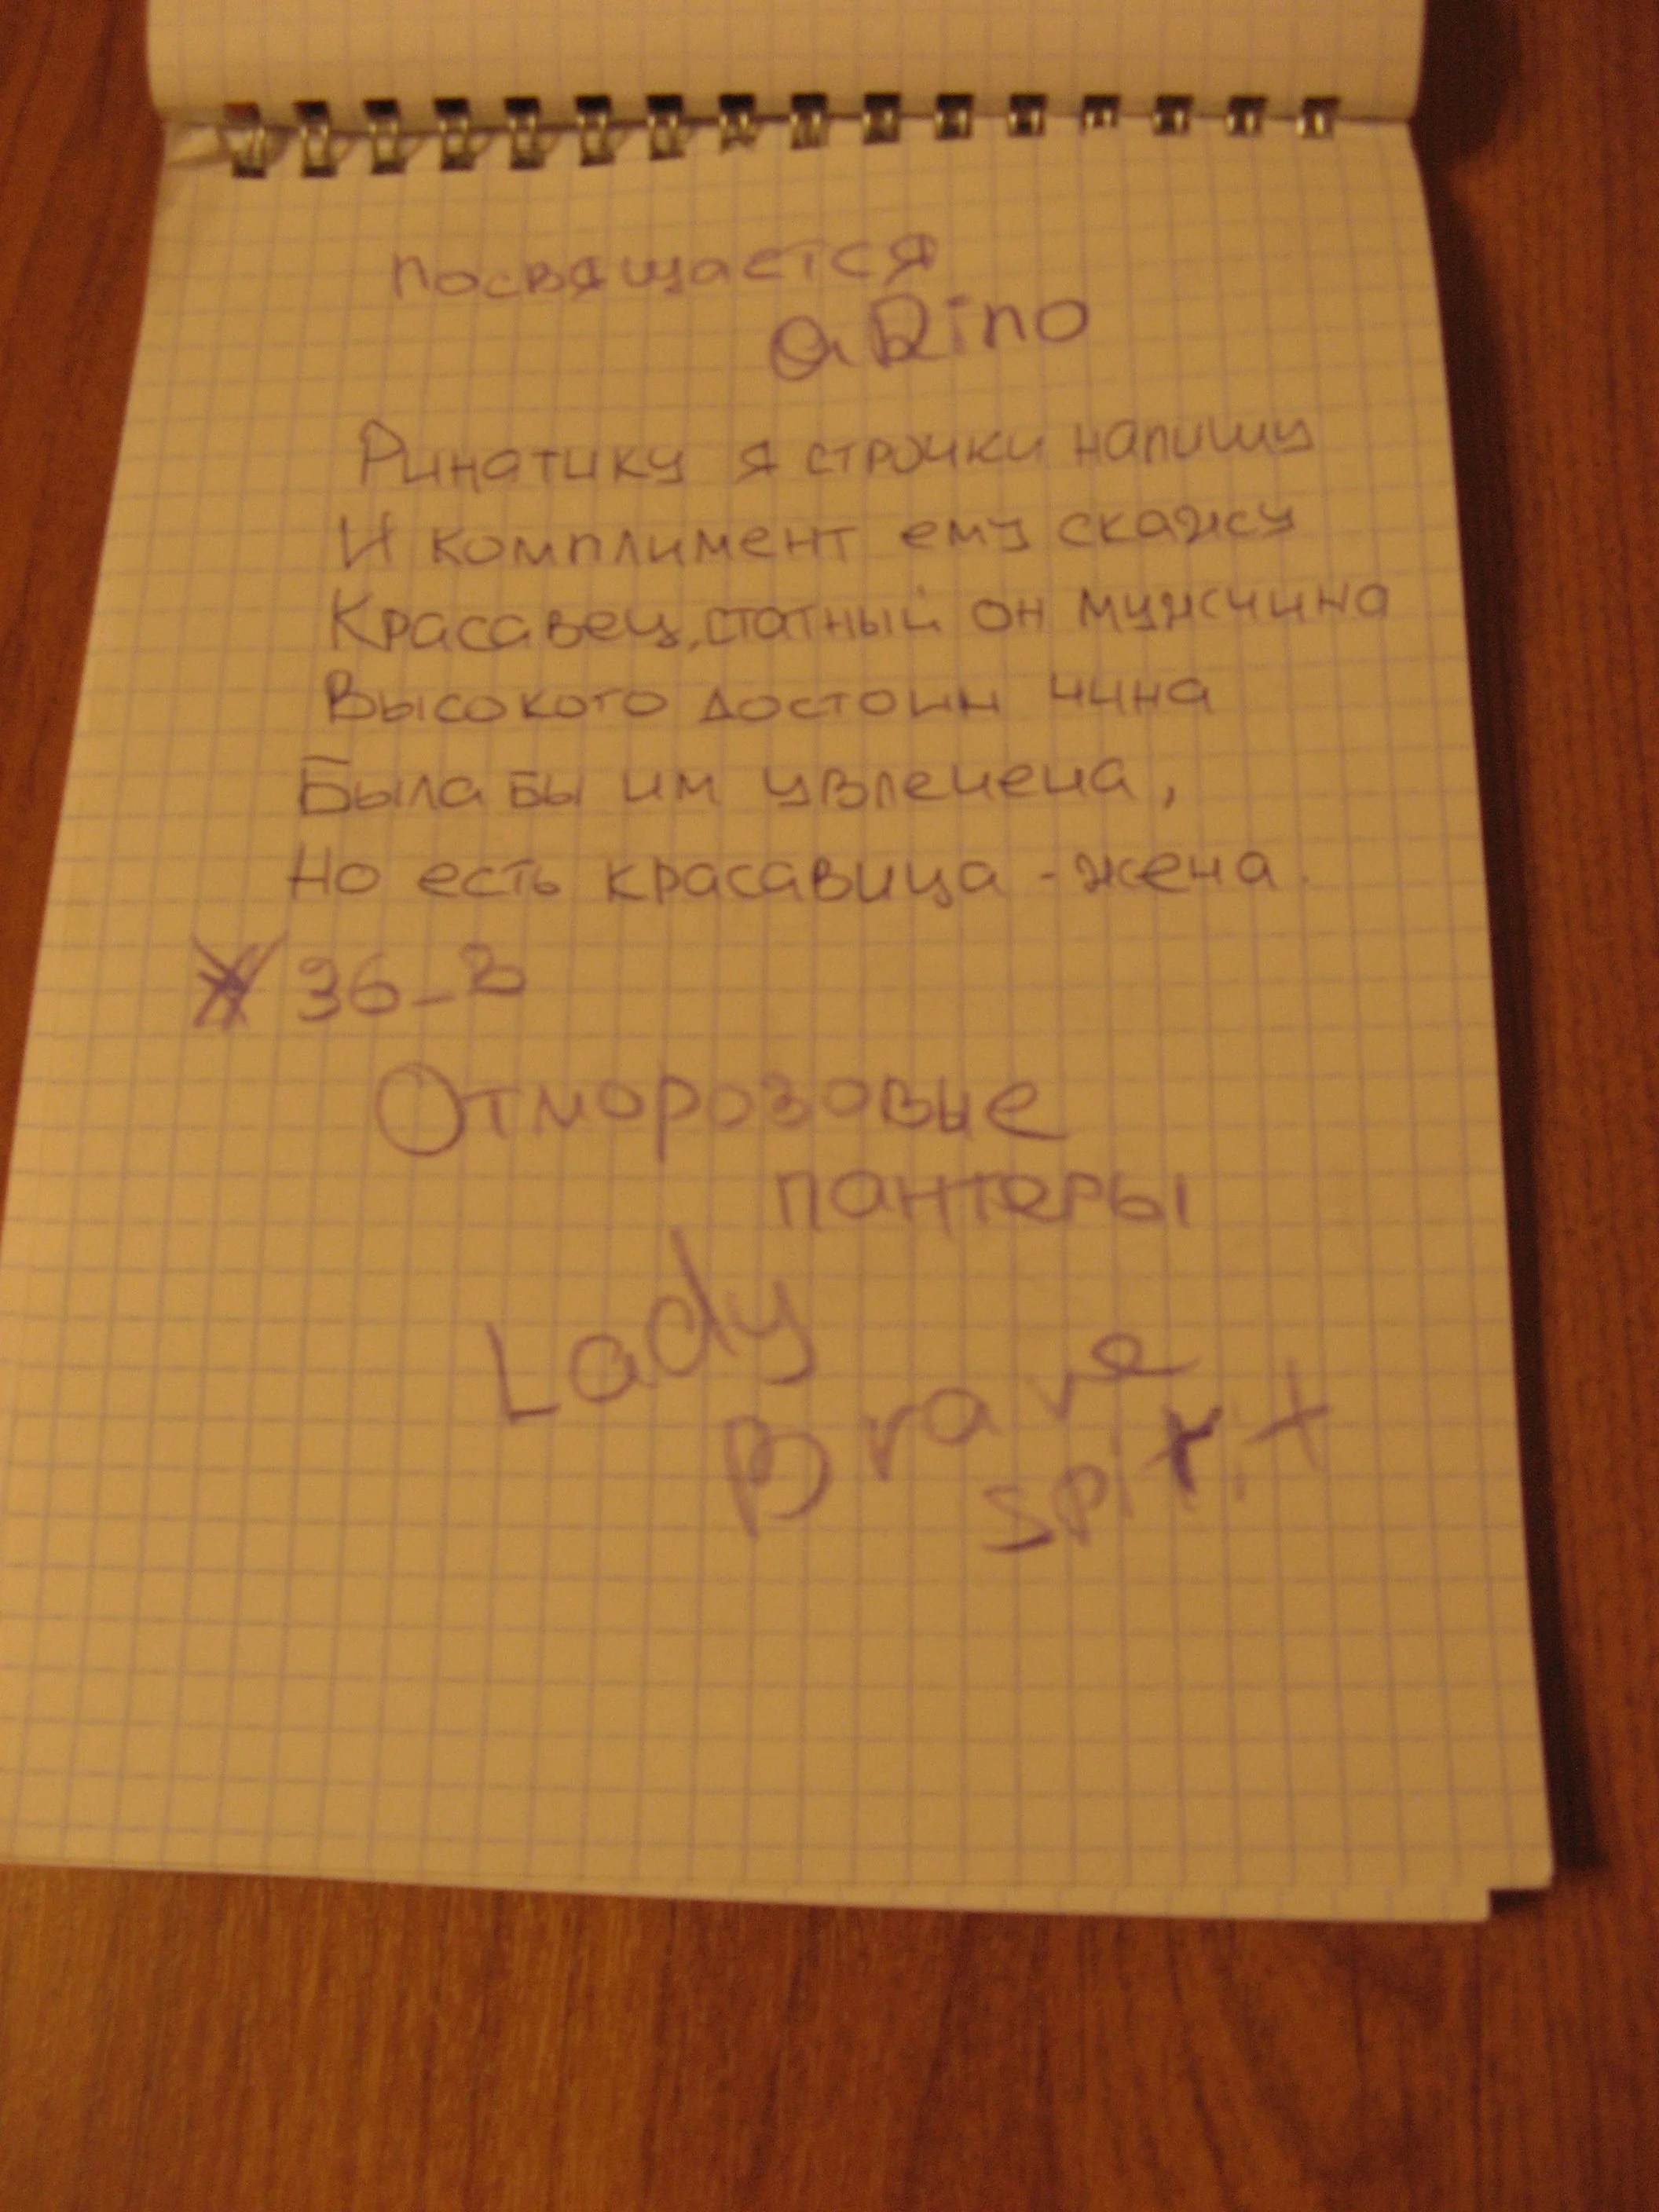 посвящается
aRino
Ринатику я строчки напишу
И комплимент ему скажу
Красавец, статный он мужчина
Высокого достоин чина
Была бы им увлечена,
Но есть красавица - жена.
36_3
Отморозовые
пантеры
Lady
Brave
spirit